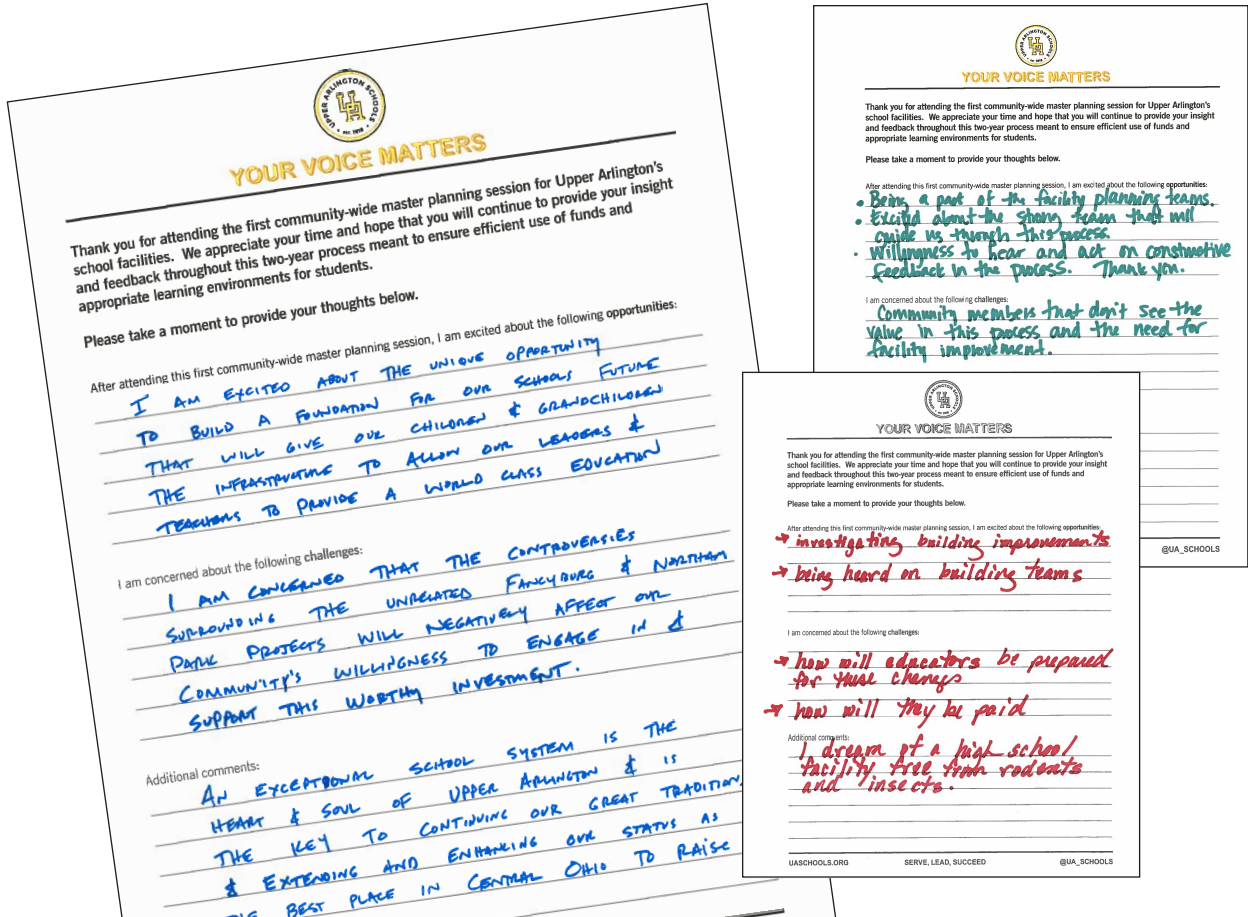 UPPER ARLINGTON SCHOOLS
UA
EST. 1918
YOUR VOICE MATTERS
Thank you for attending the first community-wide master planning session for Upper Arlington's
school facilities. We appreciate your time and hope that you will continue to provide your insight
and feedback throughout this two-year process meant to ensure efficient use of funds and
appropriate learning environments for students.
Please take a moment to provide your thoughts below.
After attending this first community-wide master planning session, I am excited about the following opportunities:
I AM EXCITED ABOUT THE UNIQUE OPPORTUNITY
TO BUILD A FOUNDATION FOR OUR SCHOOLS FUTURE
THAT WILL GIVE OUR CHILDREN & GRANDCHILDREN
THE INFRASTRUCTURE TO ALLOW OUR LEADERS &
TEACHERS TO PROVIDE A WORLD CLASS EDUCATION
I am concerned about the following challenges:
I AM CONCERNED THAT THE CONTROVERSIES
SURROUNDING THE UNRELATED FANCYBURG & NORTHAM
PARK PROJECTS WILL NEGATIVELY AFFECT OUR
COMMUNITY'S WILLINGNESS TO ENGAGE IN &
SUPPORT THIS WORTHY INVESTMENT.
Additional comments:
AN EXCEPTIONAL SCHOOL SYSTEM IS THE
HEART & SOUL OF UPPER ARLINGTON & IS
THE KEY TO CONTINUING OUR GREAT TRADITION
& EXTENDING AND ENHANCING OUR STATUS AS
BEST PLACE IN CENTRAL OHIO TO RAISE
YOUR VOICE MATTERS
Thank you for attending the first community-wide master planning session for Upper Arlington's
school facilities. We appreciate your time and hope that you will continue to provide your insight
and feedback throughout this two-year process meant to ensure efficient use of funds and
appropriate learning environments for students.
Please take a moment to provide your thoughts below.
After attending this first community-wide master planning session, I am excited about the following opportunities:
• Being a part of the facility planning teams.
• Excited about the strong team that will
guide us through this process.
• Willingness to hear and act on constructive
feedback in the process. Thank you.
I am concerned about the following challenges:
Community members that don't see the
value in this process and the need for
facility improvement.
@UA_SCHOOLS
YOUR VOICE MATTERS
Thank you for attending the first community-wide master planning session for Upper Arlington's
school facilities. We appreciate your time and hope that you will continue to provide your insight
and feedback throughout this two-year process meant to ensure efficient use of funds and
appropriate learning environments for students.
Please take a moment to provide your thoughts below.
After attending this first community-wide master planning session, I am excited about the following opportunities:
→ investigating building improvements
→ being heard on building teams
I am concerned about the following challenges:
→ how will educators be prepared
for these changes
→ how will they be paid
Additional comments:
I dream of a high school
facility free from rodents
and insects.
UASCHOOLS.ORG SERVE, LEAD, SUCCEED @UA_SCHOOLS